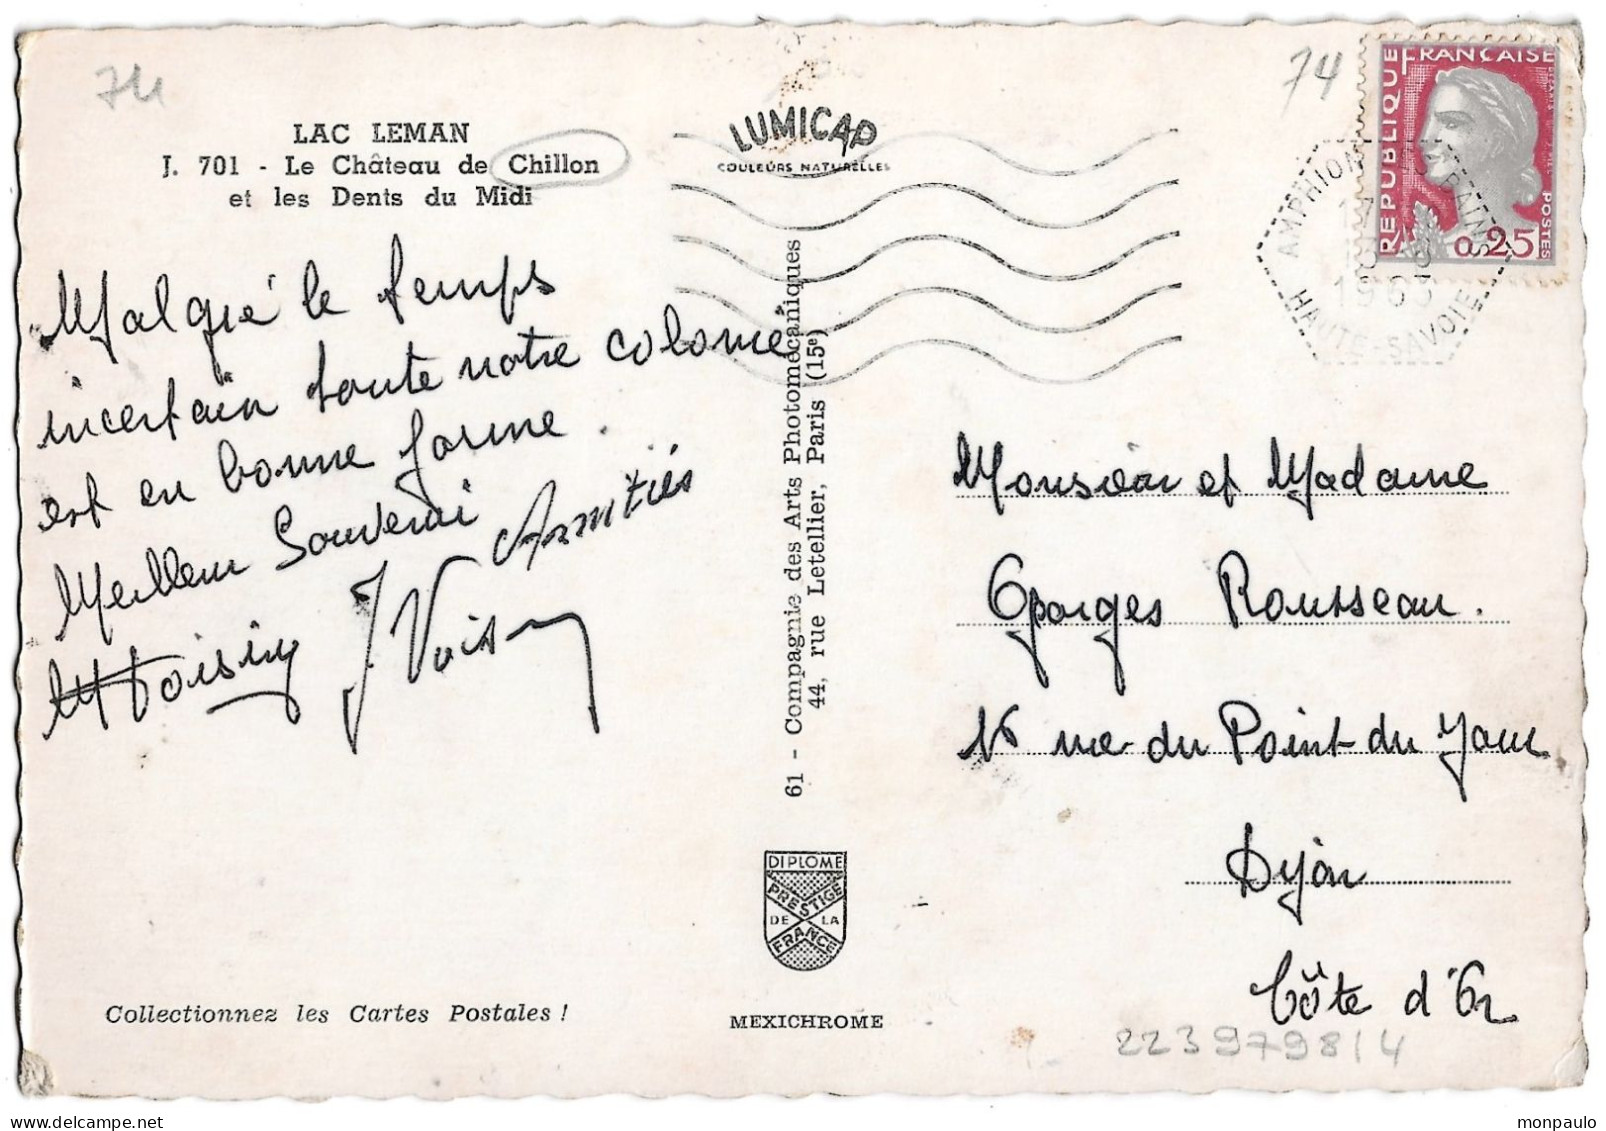 74
LAC LEMAN
J. 701 - Le Château de Chillon
et les Dents du Midi
Malgré le temps
incertain toute notre colonie
est en bonne forme.
Meilleur Souvenir Amitiés
Voisin J. Voisin
Collectionnez les Cartes Postales !
LUMICAP
COULEURS NATURELLES
61 - Compagnie des Arts Photomécaniques
44, rue Letellier, Paris (15e)
DIPLOME
PRESTIGE
DE LA
FRANCE
MEXICHROME
74
REPUBLIQUE FRANÇAISE
POSTES
0,25
AMPHION
HAUTE-SAVOIE
1963
Monsieur et Madame
Georges Rousseau.
16 rue du Point du Jour
Dijon
Côte d'Or
223979814
monpaulo